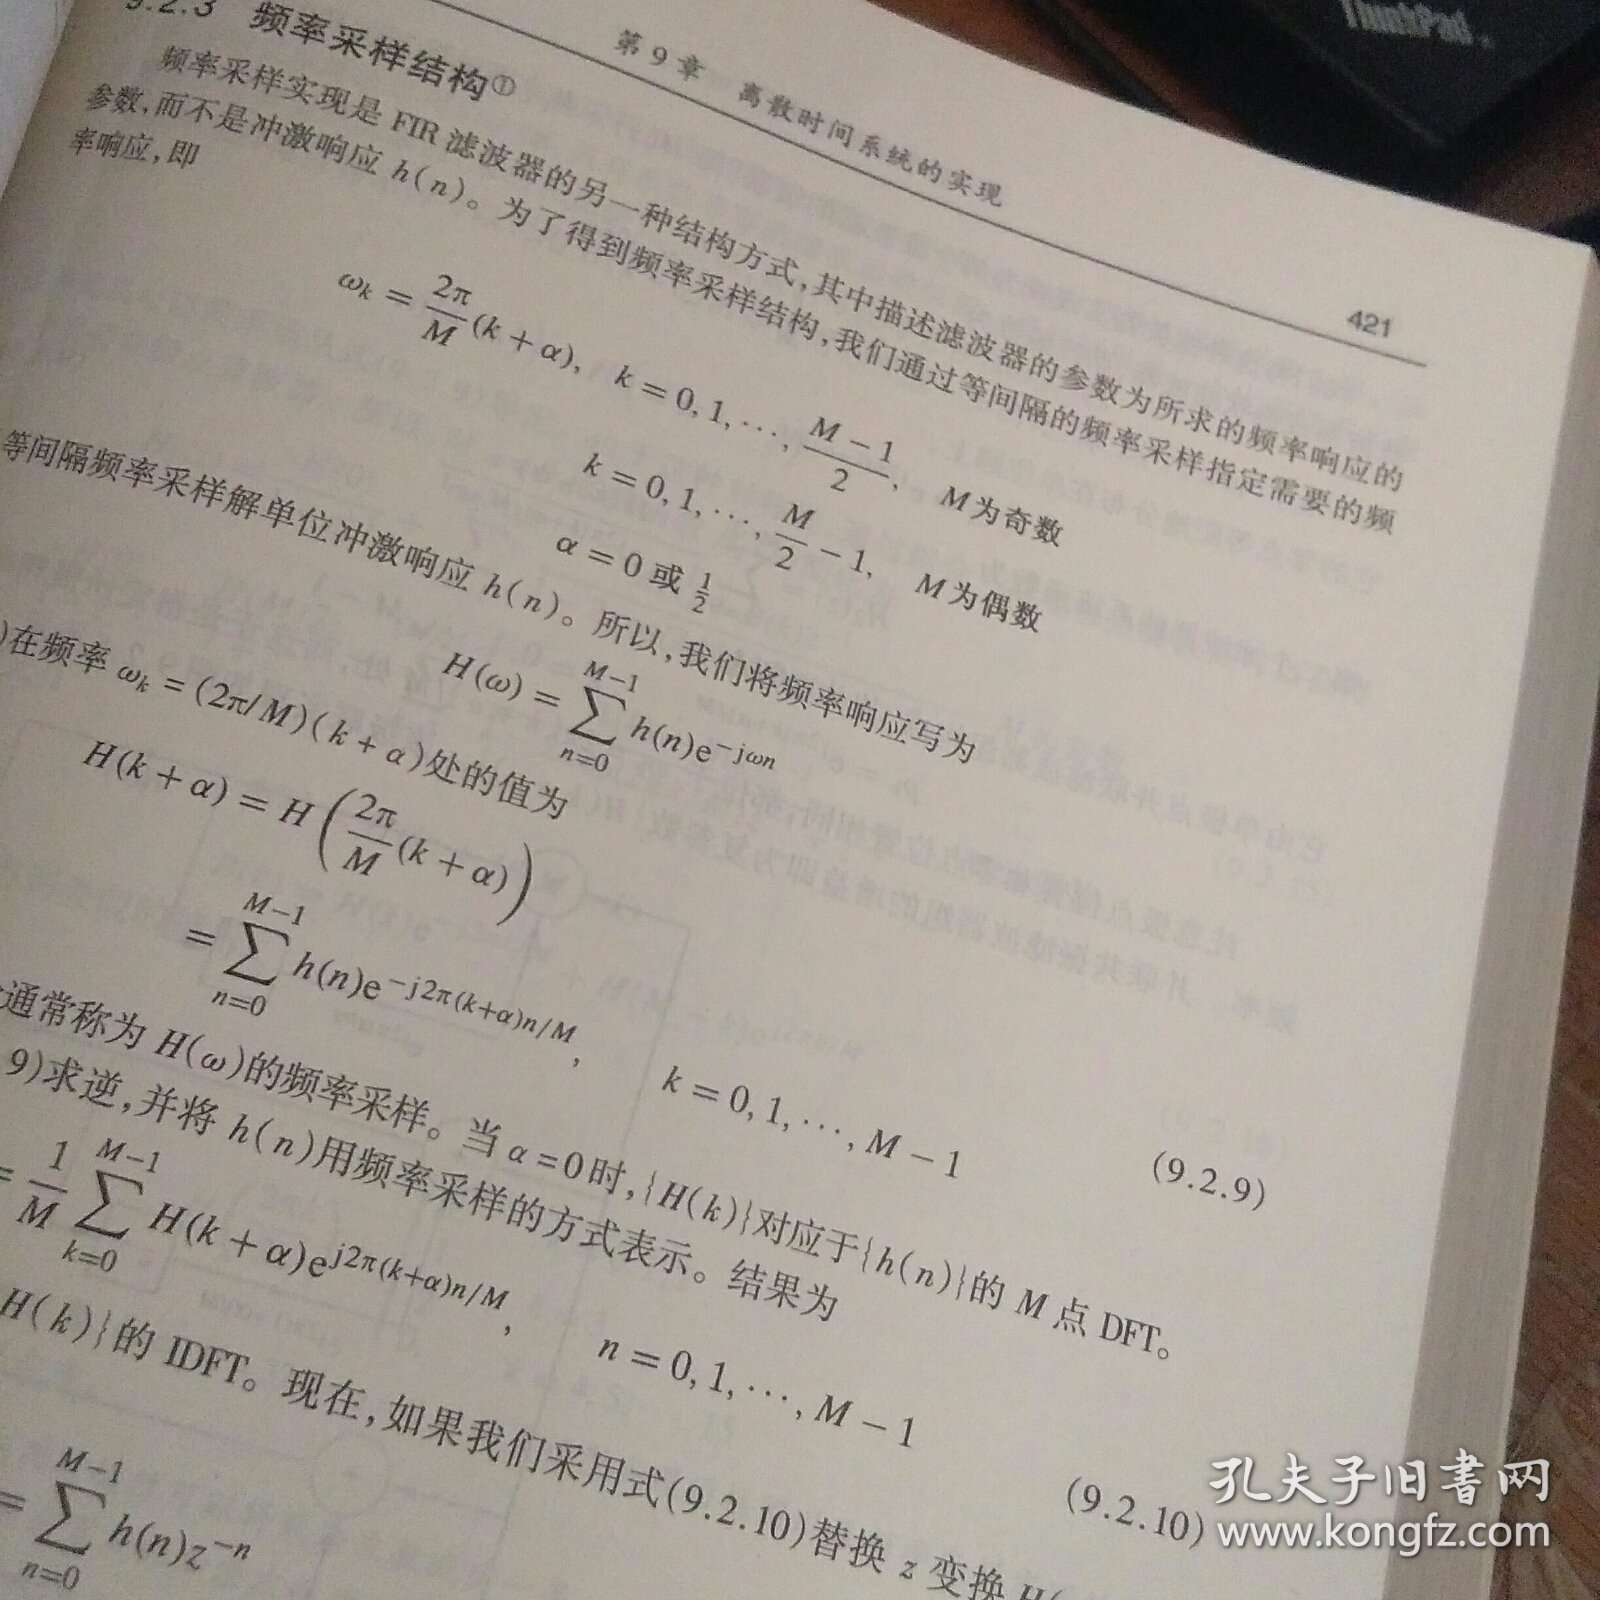 ThinkPad
第9章 离散时间系统的实现
421
9.2.3 频率采样结构①
频率采样实现是 FIR 滤波器的另一种结构方式,其中描述滤波器的参数为所求的频率响应的
参数,而不是冲激响应 h(n)。为了得到频率采样结构,我们通过等间隔的频率采样指定需要的频
率响应,即
ωk = 2π/M (k + α), k = 0, 1, ⋯, (M − 1)/2, M 为奇数
k = 0, 1, ⋯, M/2 − 1, M 为偶数
α = 0 或 1/2
等间隔频率采样解单位冲激响应 h(n)。所以,我们将频率响应写为
H(ω) = ∑_{n=0}^{M−1} h(n)e^{−jωn}
)在频率 ωk = (2π/M)(k + α)处的值为
H(k + α) = H(2π/M (k + α))
= ∑_{n=0}^{M−1} h(n)e^{−j2π(k+α)n/M}, k = 0, 1, ⋯, M − 1 (9.2.9)
通常称为 H(ω)的频率采样。当 α = 0 时,{H(k)}对应于{h(n)}的 M 点 DFT。
9)求逆,并将 h(n)用频率采样的方式表示。结果为
= 1/M ∑_{k=0}^{M−1} H(k + α)e^{j2π(k+α)n/M}, n = 0, 1, ⋯, M − 1 (9.2.10)
H(k)}的 IDFT。现在,如果我们采用式(9.2.10)替换 z 变换 H(
= ∑_{n=0}^{M−1} h(n)z^{−n}
孔夫子旧书网
www.kongfz.com